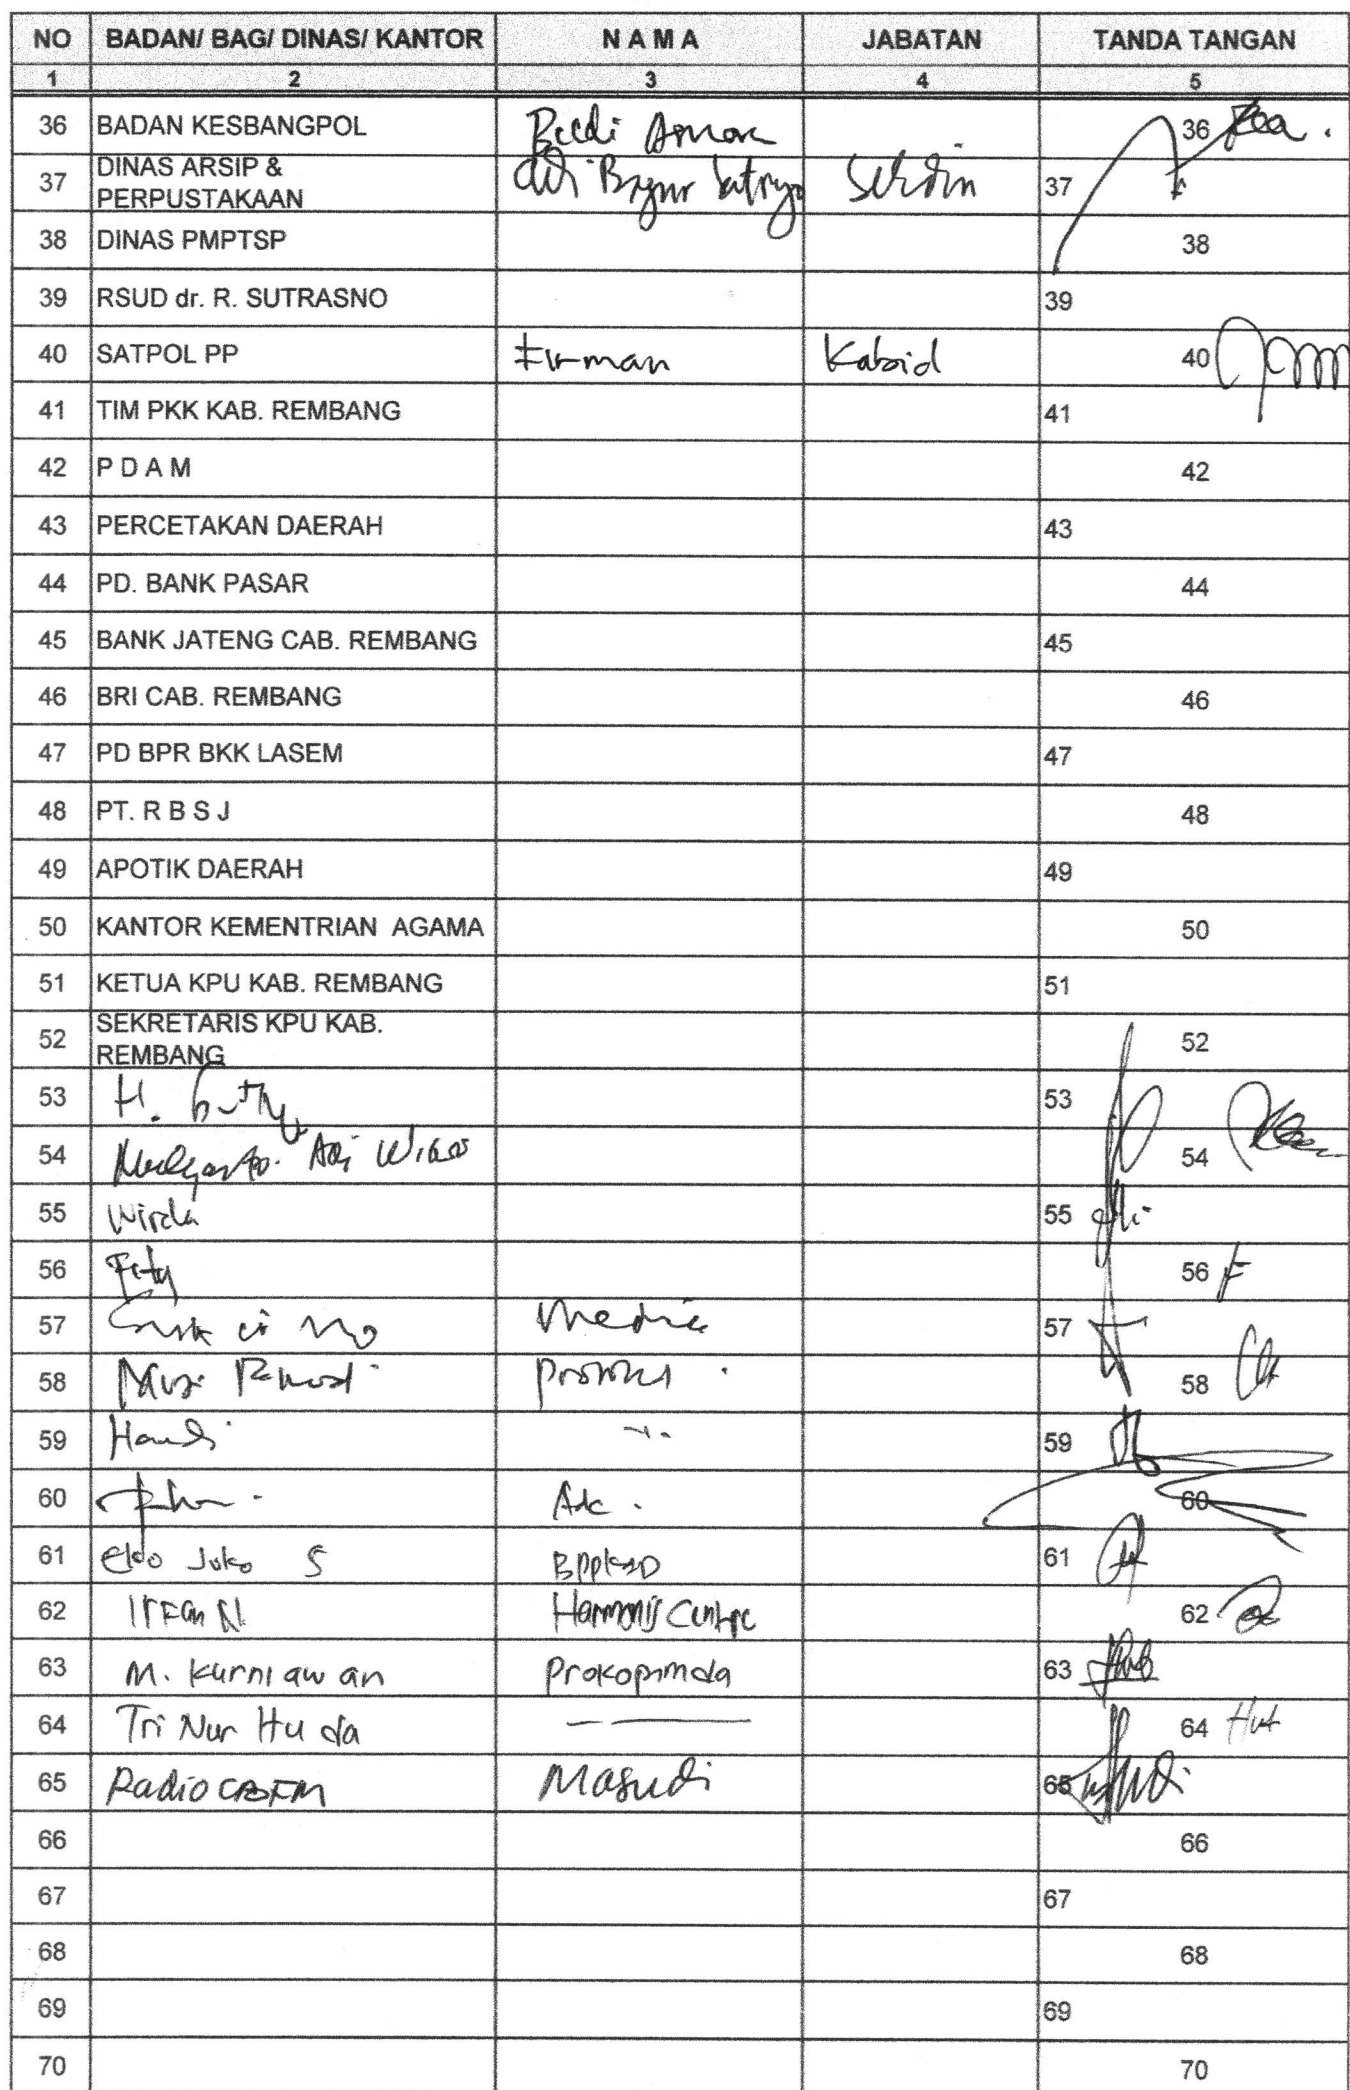 NO BADAN/ BAG/ DINAS/ KANTOR N A M A JABATAN TANDA TANGAN
1 2 3 4 5
36 BADAN KESBANGPOL 36
37 DINAS ARSIP & PERPUSTAKAAN Sekdin 37
38 DINAS PMPTSP 38
39 RSUD dr. R. SUTRASNO 39
40 SATPOL PP Firman Kabid 40
41 TIM PKK KAB. REMBANG 41
42 P D A M 42
43 PERCETAKAN DAERAH 43
44 PD. BANK PASAR 44
45 BANK JATENG CAB. REMBANG 45
46 BRI CAB. REMBANG 46
47 PD BPR BKK LASEM 47
48 PT. R B S J 48
49 APOTIK DAERAH 49
50 KANTOR KEMENTRIAN AGAMA 50
51 KETUA KPU KAB. REMBANG 51
52 SEKRETARIS KPU KAB. REMBANG 52
53 H. 53
54 54
55 Wirda 55
56 56
57 Media 57
58 58
59 59
60 60
61 Eko Joko S BPPKAD 61
62 Irfan N. Harmonis Centre 62
63 M. Kurniawan Prokopimda 63
64 Tri Nur Huda 64
65 Radio CBFM Masudi 65
66 66
67 67
68 68
69 69
70 70